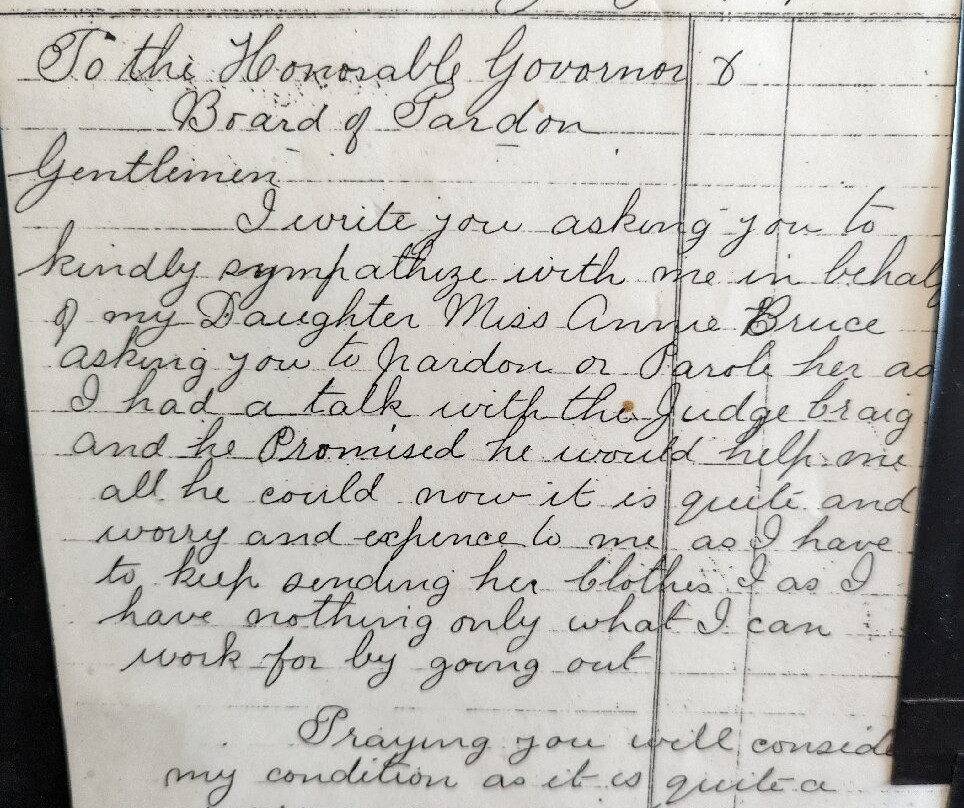 To the Honorable Governor &
Board of Pardon
Gentlemen
I write you asking you to
kindly sympathize with me in behalf
of my Daughter Miss Annie Bruce
asking you to pardon or Parole her as
I had a talk with the Judge Craig
and he Promised he would help me
all he could now it is quite and
worry and expence to me as I have
to keep sending her Clothes I as I
have nothing only what I can
work for by going out
Praying you will consid
my condition as it is quite a